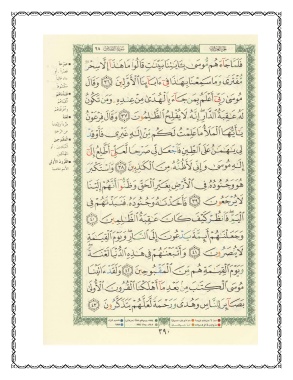 فَلَمَّا جَآءَهُم مُّوسَىٰ بِـَٔايَٰتِنَا بَيِّنَٰتٍ قَالُوا۟ مَا هَٰذَآ إِلَّا سِحْرٌ
مُّفْتَرًى وَمَا سَمِعْنَا بِهَٰذَا فِىٓ ءَابَآئِنَا ٱلْأَوَّلِينَ ٣٦ وَقَالَ
مُوسَىٰ رَبِّىٓ أَعْلَمُ بِمَن جَآءَ بِٱلْهُدَىٰ مِنْ عِندِهِۦ وَمَن تَكُونُ
لَهُۥ عَٰقِبَةُ ٱلدَّارِ إِنَّهُۥ لَا يُفْلِحُ ٱلظَّٰلِمُونَ ٣٧ وَقَالَ فِرْعَوْنُ
يَٰٓأَيُّهَا ٱلْمَلَأُ مَا عَلِمْتُ لَكُم مِّنْ إِلَٰهٍ غَيْرِى فَأَوْقِدْ
لِى يَٰهَٰمَٰنُ عَلَى ٱلطِّينِ فَٱجْعَل لِّى صَرْحًا لَّعَلِّىٓ أَطَّلِعُ إِلَىٰٓ
إِلَٰهِ مُوسَىٰ وَإِنِّى لَأَظُنُّهُۥ مِنَ ٱلْكَٰذِبِينَ ٣٨ وَٱسْتَكْبَرَ
هُوَ وَجُنُودُهُۥ فِى ٱلْأَرْضِ بِغَيْرِ ٱلْحَقِّ وَظَنُّوٓا۟ أَنَّهُمْ إِلَيْنَا
لَا يُرْجَعُونَ ٣٩ فَأَخَذْنَٰهُ وَجُنُودَهُۥ فَنَبَذْنَٰهُمْ فِى
ٱلْيَمِّ فَٱنظُرْ كَيْفَ كَانَ عَٰقِبَةُ ٱلظَّٰلِمِينَ ٤٠
وَجَعَلْنَٰهُمْ أَئِمَّةً يَدْعُونَ إِلَى ٱلنَّارِ وَيَوْمَ ٱلْقِيَٰمَةِ
لَا يُنصَرُونَ ٤١ وَأَتْبَعْنَٰهُمْ فِى هَٰذِهِ ٱلدُّنْيَا لَعْنَةً
وَيَوْمَ ٱلْقِيَٰمَةِ هُم مِّنَ ٱلْمَقْبُوحِينَ ٤٢ وَلَقَدْ ءَاتَيْنَا
مُوسَى ٱلْكِتَٰبَ مِنۢ بَعْدِ مَآ أَهْلَكْنَا ٱلْقُرُونَ ٱلْأُولَىٰ
بَصَآئِرَ لِلنَّاسِ وَهُدًى وَرَحْمَةً لَّعَلَّهُمْ يَتَذَكَّرُونَ ٤٣
٣٩٠